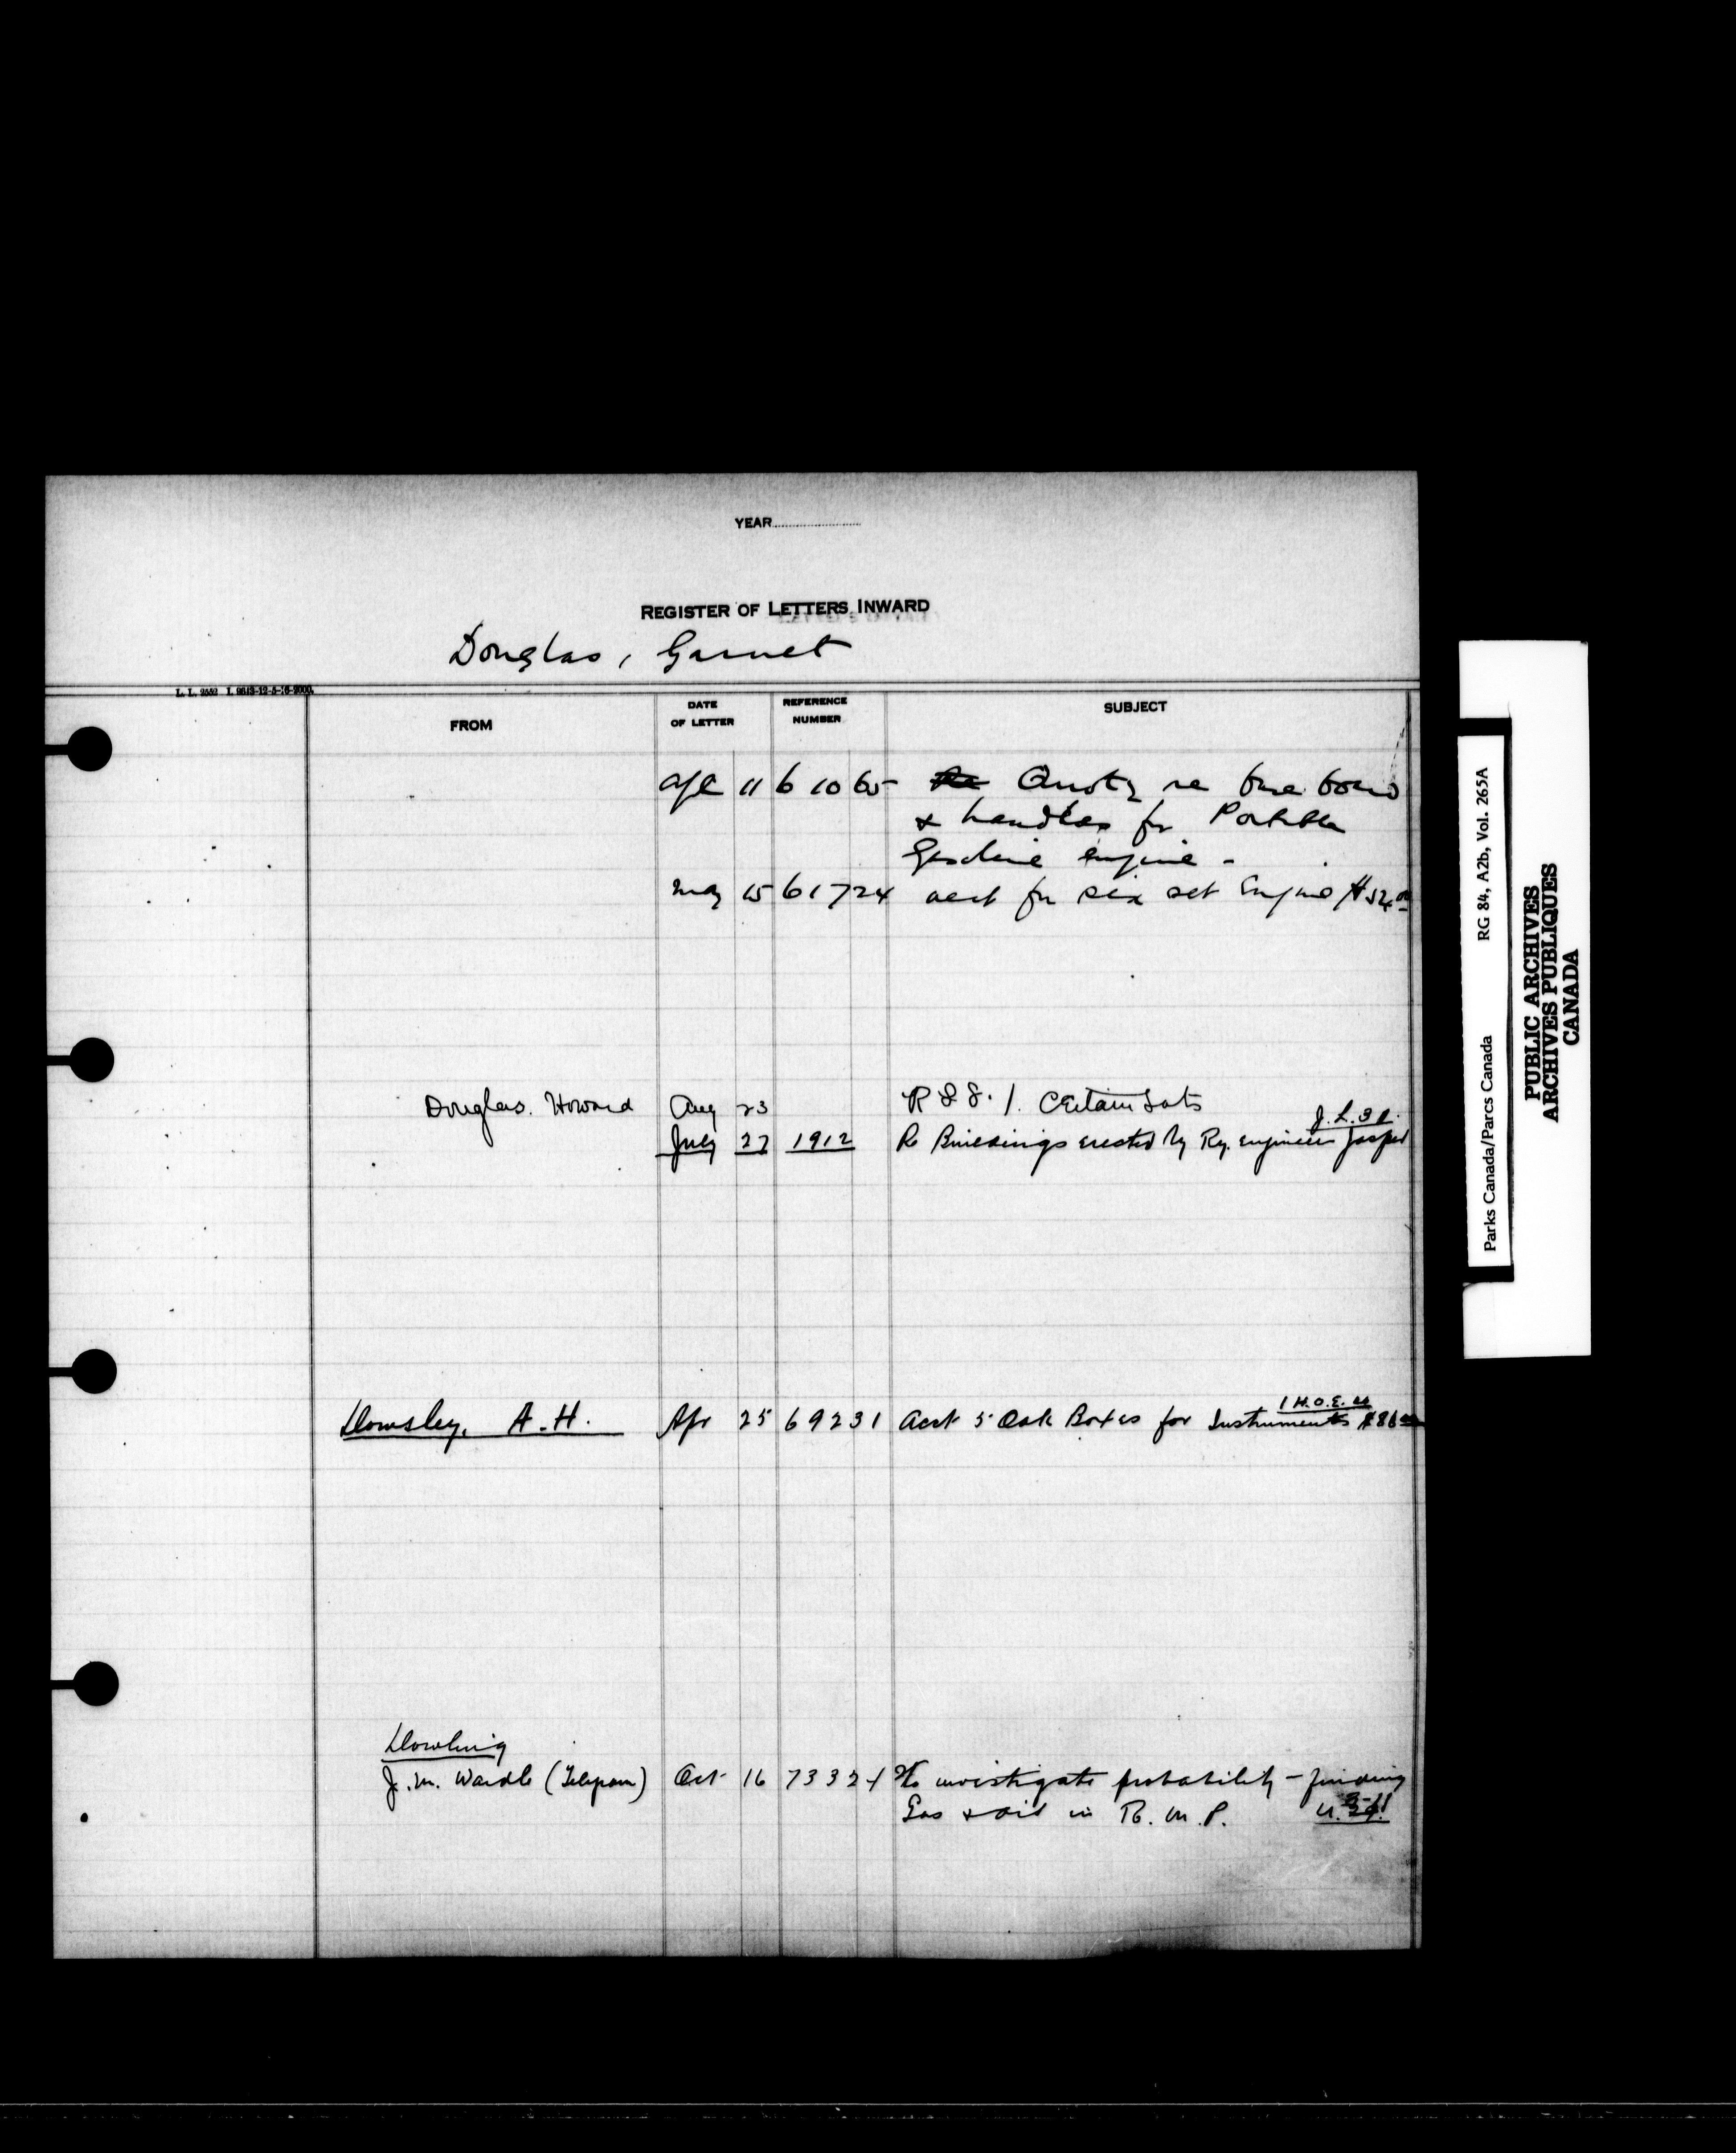 YEAR
REGISTER OF LETTERS INWARD
Douglas, Garnet
L. L. 2552 I. 9613-12-5-16-2000.
FROM DATE OF LETTER REFERENCE NUMBER SUBJECT
Apl 11 61065 re
& handles for Portable
Gasoline engine -
May 15 61724 acct for six set Engine
Douglas. Howard Aug 23 Certain Lots
J.L.31.
July 27 1912 Re Buildings erected by Ry. engineer Jasper
1 H.O.E.
Dowsley, A.H. Apr 25 69231 Acct 5 Oak Boxes for Instruments
Dowling
J.M. Wardle (Telegram) Oct 16 73324 To investigate probability - finding
Gas & oil in R.M.P.
Parks Canada/Parcs Canada RG 84, A2b, Vol. 265A
PUBLIC ARCHIVES
ARCHIVES PUBLIQUES
CANADA